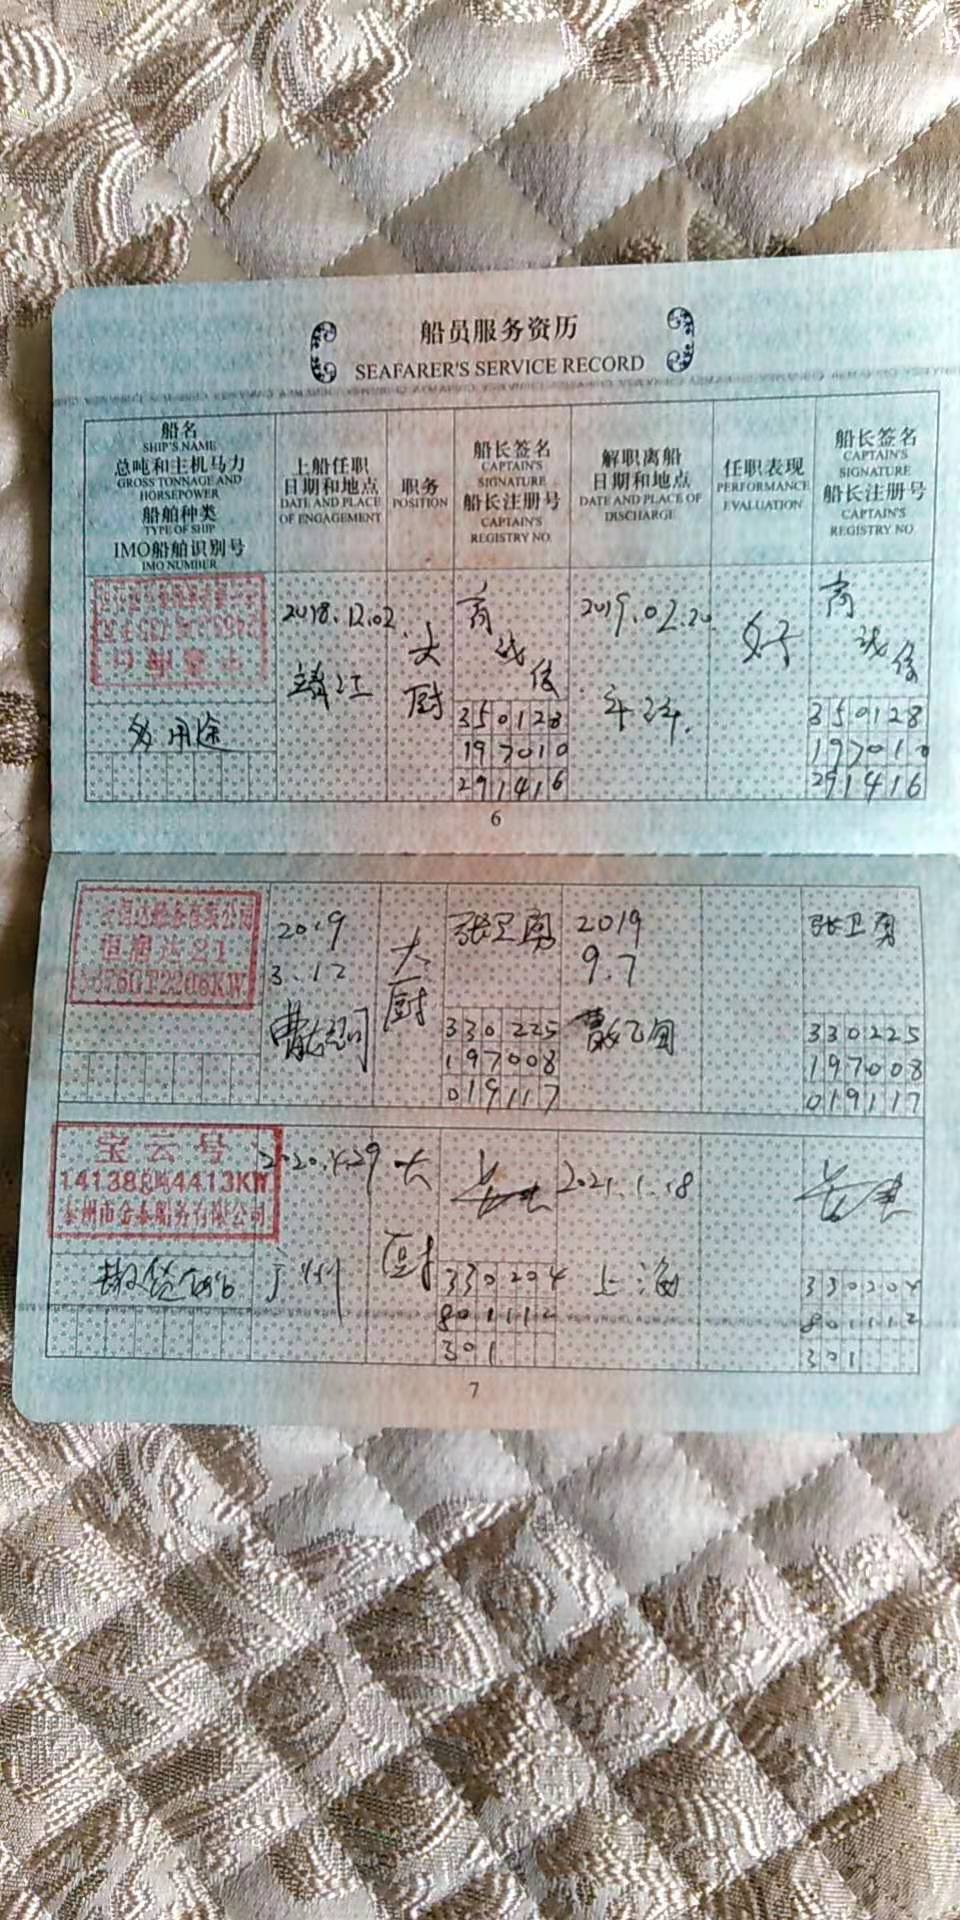 船员服务资历
SEAFARER'S SERVICE RECORD
船名
SHIP'S NAME
总吨和主机马力
GROSS TONNAGE AND
HORSEPOWER
船舶种类
TYPE OF SHIP
IMO船舶识别号
IMO NUMBER
上船任职
日期和地点
DATE AND PLACE
OF ENGAGEMENT
职务
POSITION
船长签名
CAPTAIN'S
SIGNATURE
船长注册号
CAPTAIN'S
REGISTRY NO.
解职离船
日期和地点
DATE AND PLACE OF
DISCHARGE
任职表现
PERFORMANCE
EVALUATION
船长签名
CAPTAIN'S
SIGNATURE
船长注册号
CAPTAIN'S
REGISTRY NO.
多用途
2018.12.02
靖江
大
厨
350128
197010
291416
2019.02.20
好
350128
197010
291416
6
恒润达21
2019
3.12
大
厨
张卫勇
330225
197008
019117
2019
9.7
张卫勇
330225
197008
019117
宝云号
14138总吨4413KW
泰州市金泰船务有限公司
散货船
2020.4.29
广州
大
厨
330204
801112
301
2021.1.18
上海
330204
801112
301
7